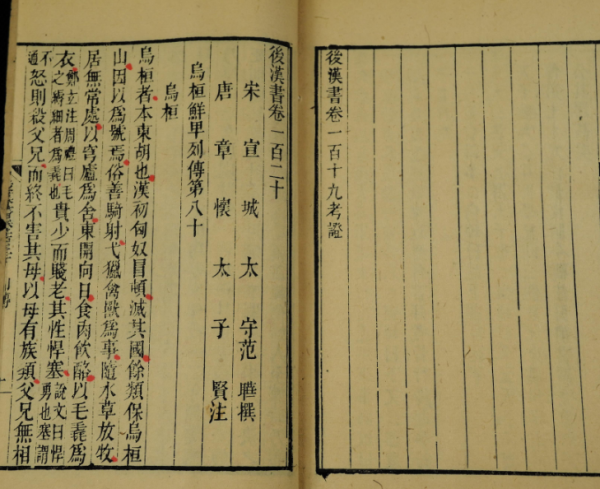 後漢書卷一百十九考證
後漢書卷一百二十
宋宣城太守范曄撰
唐章懷太子賢注
烏桓鮮卑列傳第八十
烏桓
烏桓者本東胡也漢初匈奴冒頓滅其國餘類保烏桓
山因以爲號焉俗善騎射弋獵禽獸爲事隨水草放牧
居無常處以穹廬爲舍東開向日食肉飲酪以毛毳爲
衣鄭玄注周禮曰毛之縟細者爲毳也貴少而賤老其性悍塞說文曰悍勇也塞謂
不通怒則殺父兄而終不害其母以母有族類父兄無相